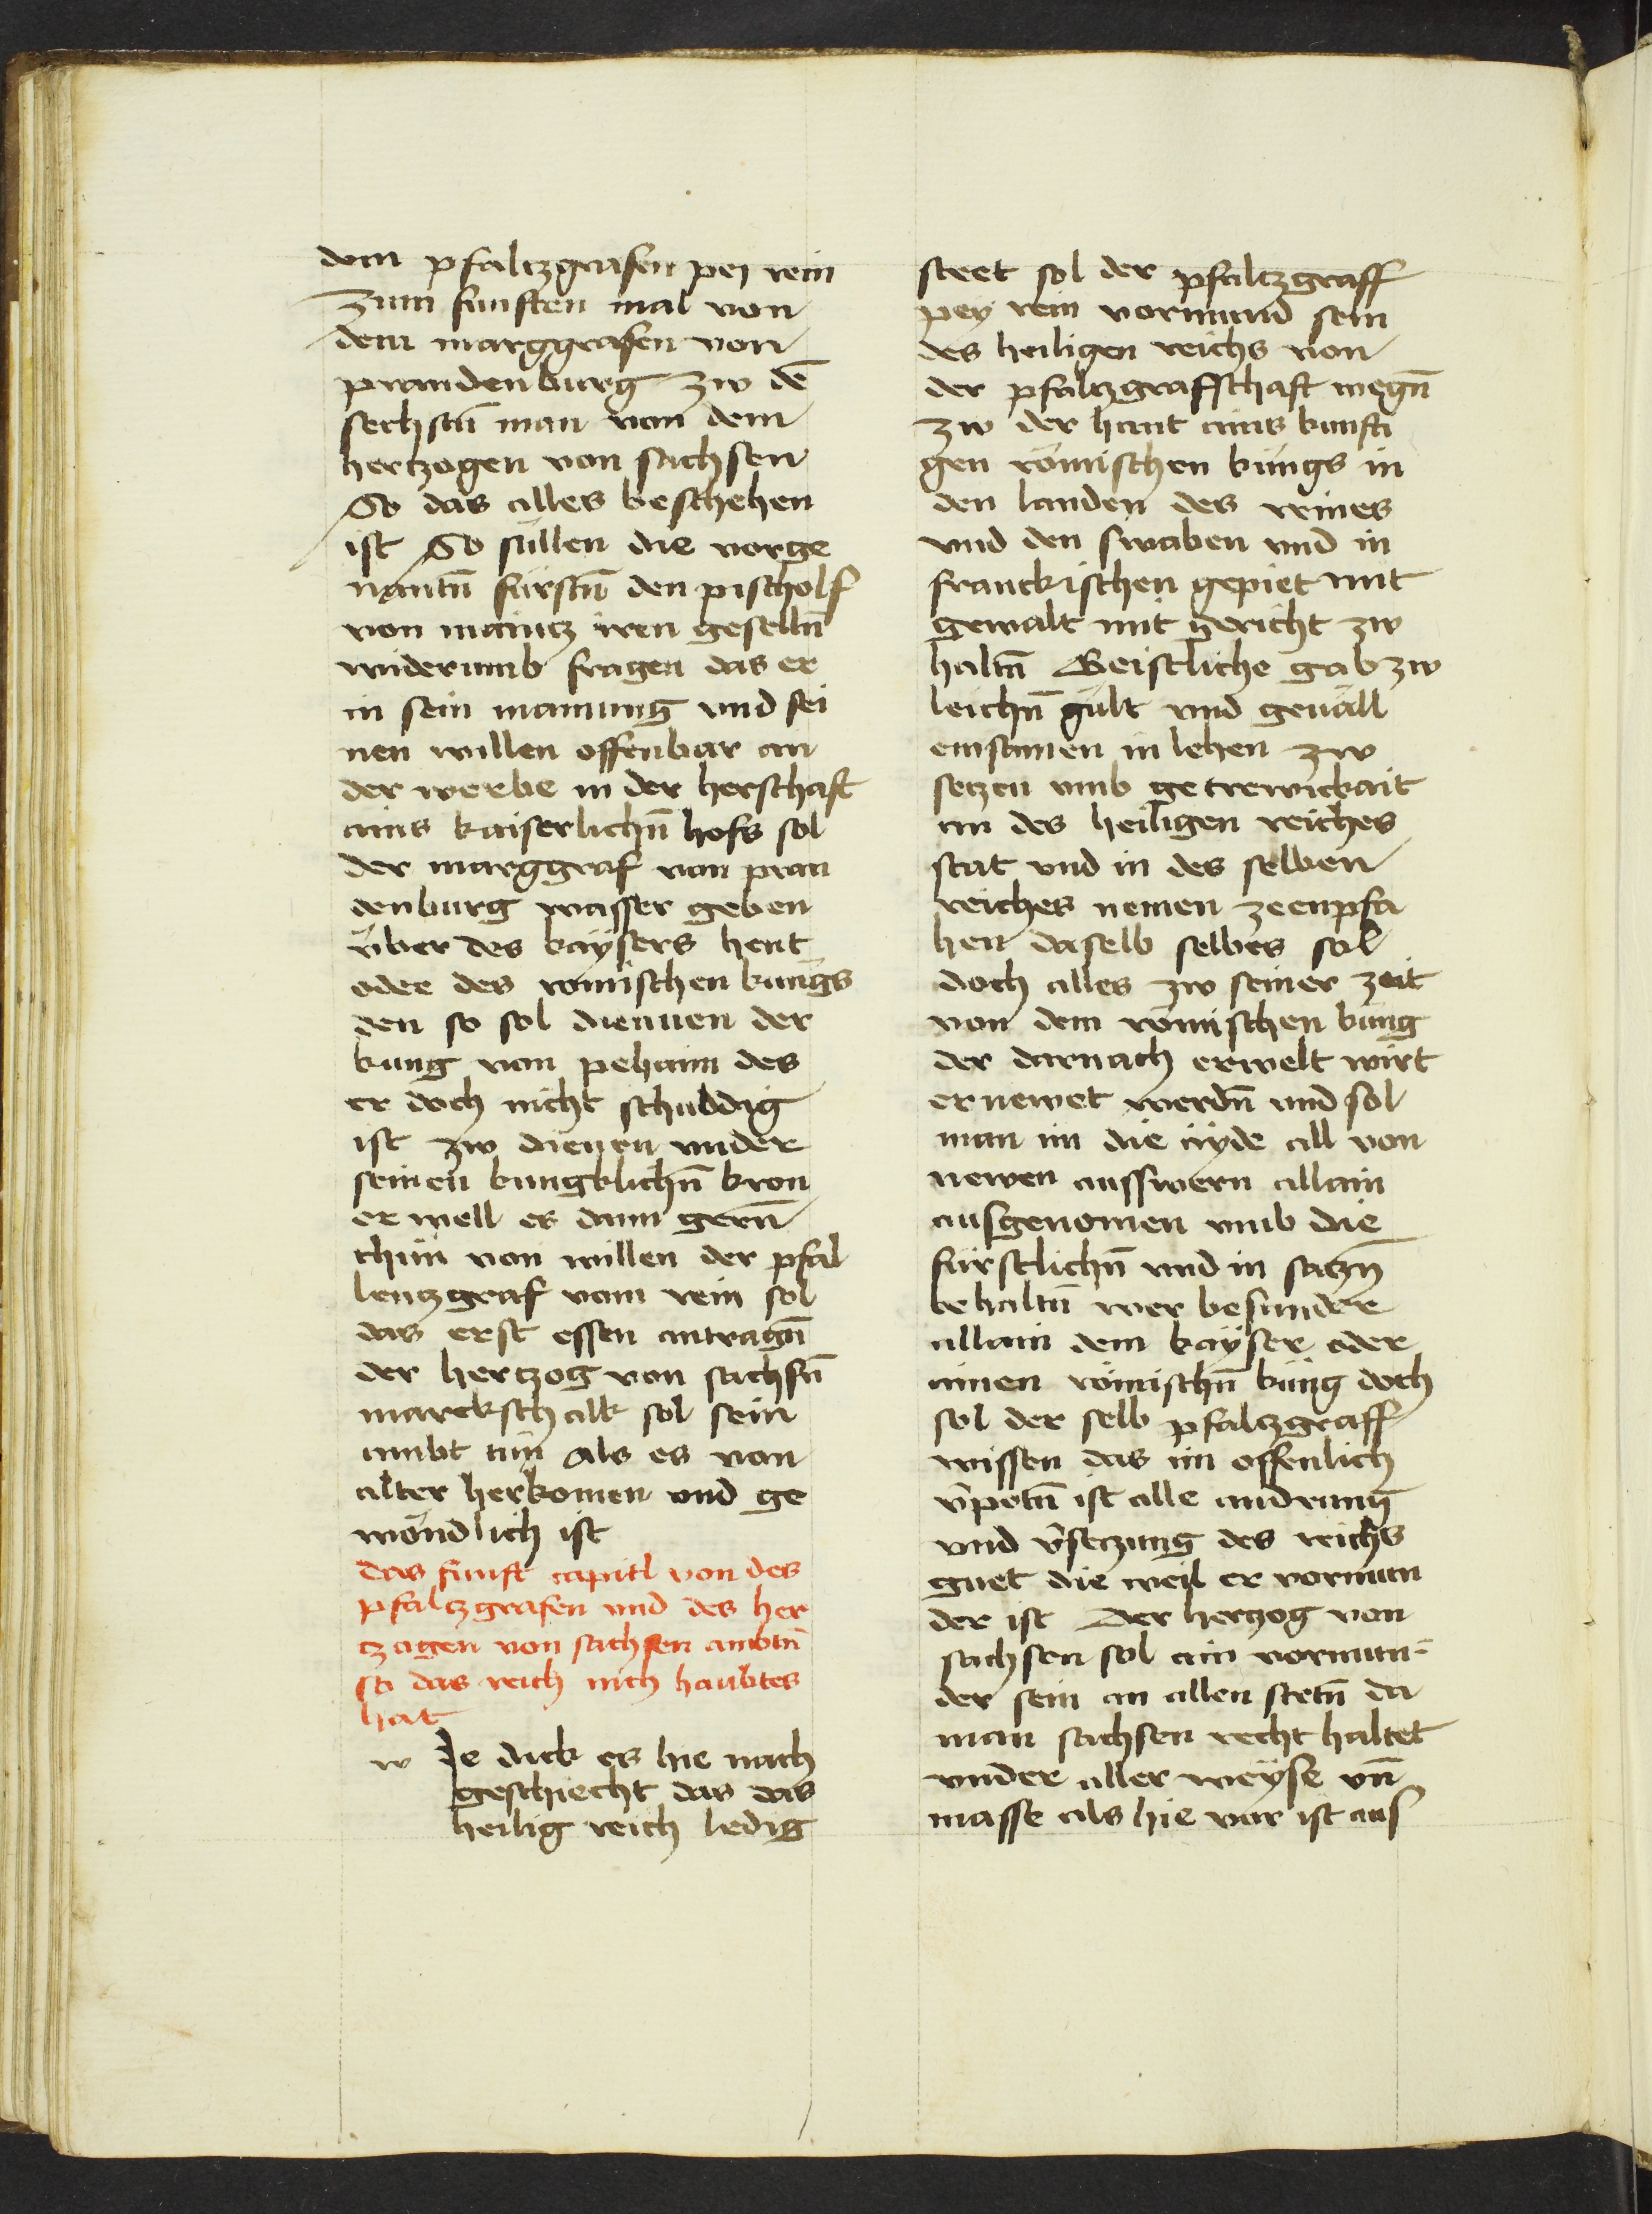 dem pfaltzgrafen pej rein
zum funften mal von
dem marggrafen von
prandenburg zw dē
sechstn̄ man von dem
hertzogen von sachsen
So das alles beschehen
ist So süllen die vorge
nantn̄ fürstn̄ den pischolf
von maintz iren geselln̄
widerumb fragen das er
in sein mainung vnd sei
nen willen offenbar an
der werbe in der herschaft
ains kaiserlichn̄ hofs sol
der marggraf von pran
denburg wasser geben
v̈ber des kaÿsers hent
oder des romischen kungs
den so sol diennen der
kung von pehaim des
er doch nicht schuldig
ist zw dienen vnder
seinen kungklichn̄ kron
er well es dann gern̄
thun von willen der pfal
lentzgraf vom rein sol
das erst essen antragn̄
der hertzog von sachsn̄
marckschalk sol sein
ambt tün als es von
alter herkomen vnd ge
wöndlich ist
das funft capitl von des
pfaltzgrafen vnd des her
tzogen von sachsen ambtn̄
so das reich nich haubtes
hat
w Ie dick es hie nach
geschiecht das das
heilig reich ledig
steet sol der pfaltzgraff
pey rein vormund sein
des heiligen reichs von
der pfaltzgraffschaft wegn̄
zw der hant ains kunfti
gen römischen küngs in
den landen des reines
vnd den swaben vnd in
franckischen gepiet mit
gewalt mit gericht zw
haltn̄ Geistliche gab zw
leichn̄ gült vnd geuäll
einsamen in lehen zw
setzen vmb getrewickait
an des heiligen reiches
stat vnd in des selben
reiches nemen zeenpfa
hen daselb selbes sol
doch alles zw seiner zeit
von dem römischen küng
der darnach erwelt wirt
ernewet werdn̄ vnd sol
man im die aÿde all von
newen ausswern allain
ausgenomen vmb die
fürstlichn̄ vnd in satzn̄
behaltn̄ wer besunder
allain dem kaÿser oder
ainen römischn̄ küng doch
sol der selb pfaltzgraff
wissen das im offenlich
v̄potn̄ ist alle andrung
vnd v̄setzung des reichs
guet die weil er vormun
der ist Der hertzog von
sachsen sol ain vormun-
der sein an allen stetn̄ da
man sachsen recht haltet
vnder aller weÿse vn̄
masse als hie vor ist aus